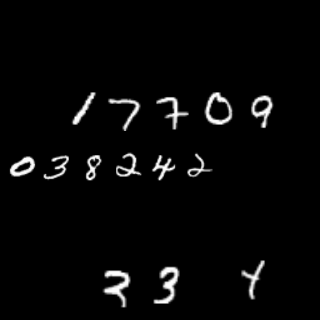 17709
038242
33 Y